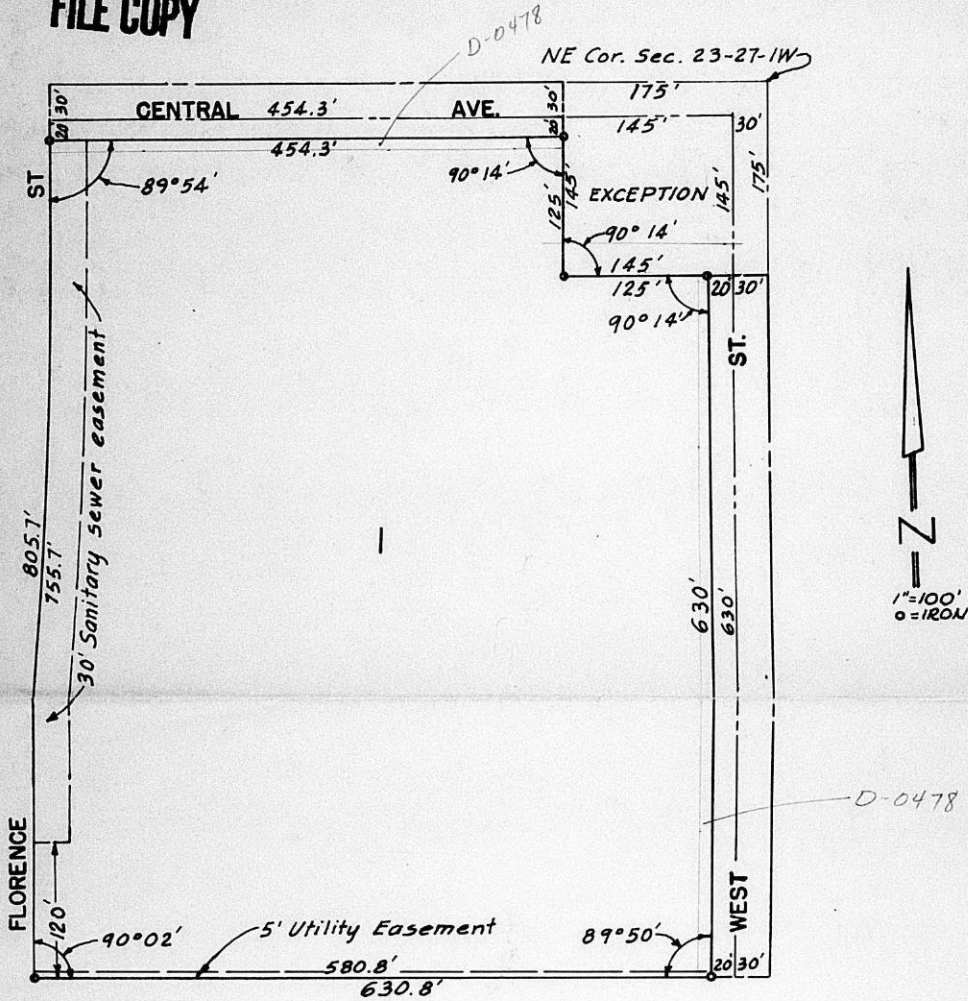 FILE COPY
D-0478
NE Cor. Sec. 23-27-1W
175'
30'
CENTRAL 454.3' AVE.
30'
145'
30'
20'
454.3'
20'
ST
89°54'
90°14'
125'
145'
EXCEPTION
145'
175'
90°14'
145'
125'
20' 30'
90°14'
ST.
30' Sanitary sewer easement
805.7'
755.7'
1
630'
630'
N
1"=100'
o=IRON
D-0478
FLORENCE
120'
90°02'
5' Utility Easement
89°50'
WEST
580.8'
20' 30'
630.8'